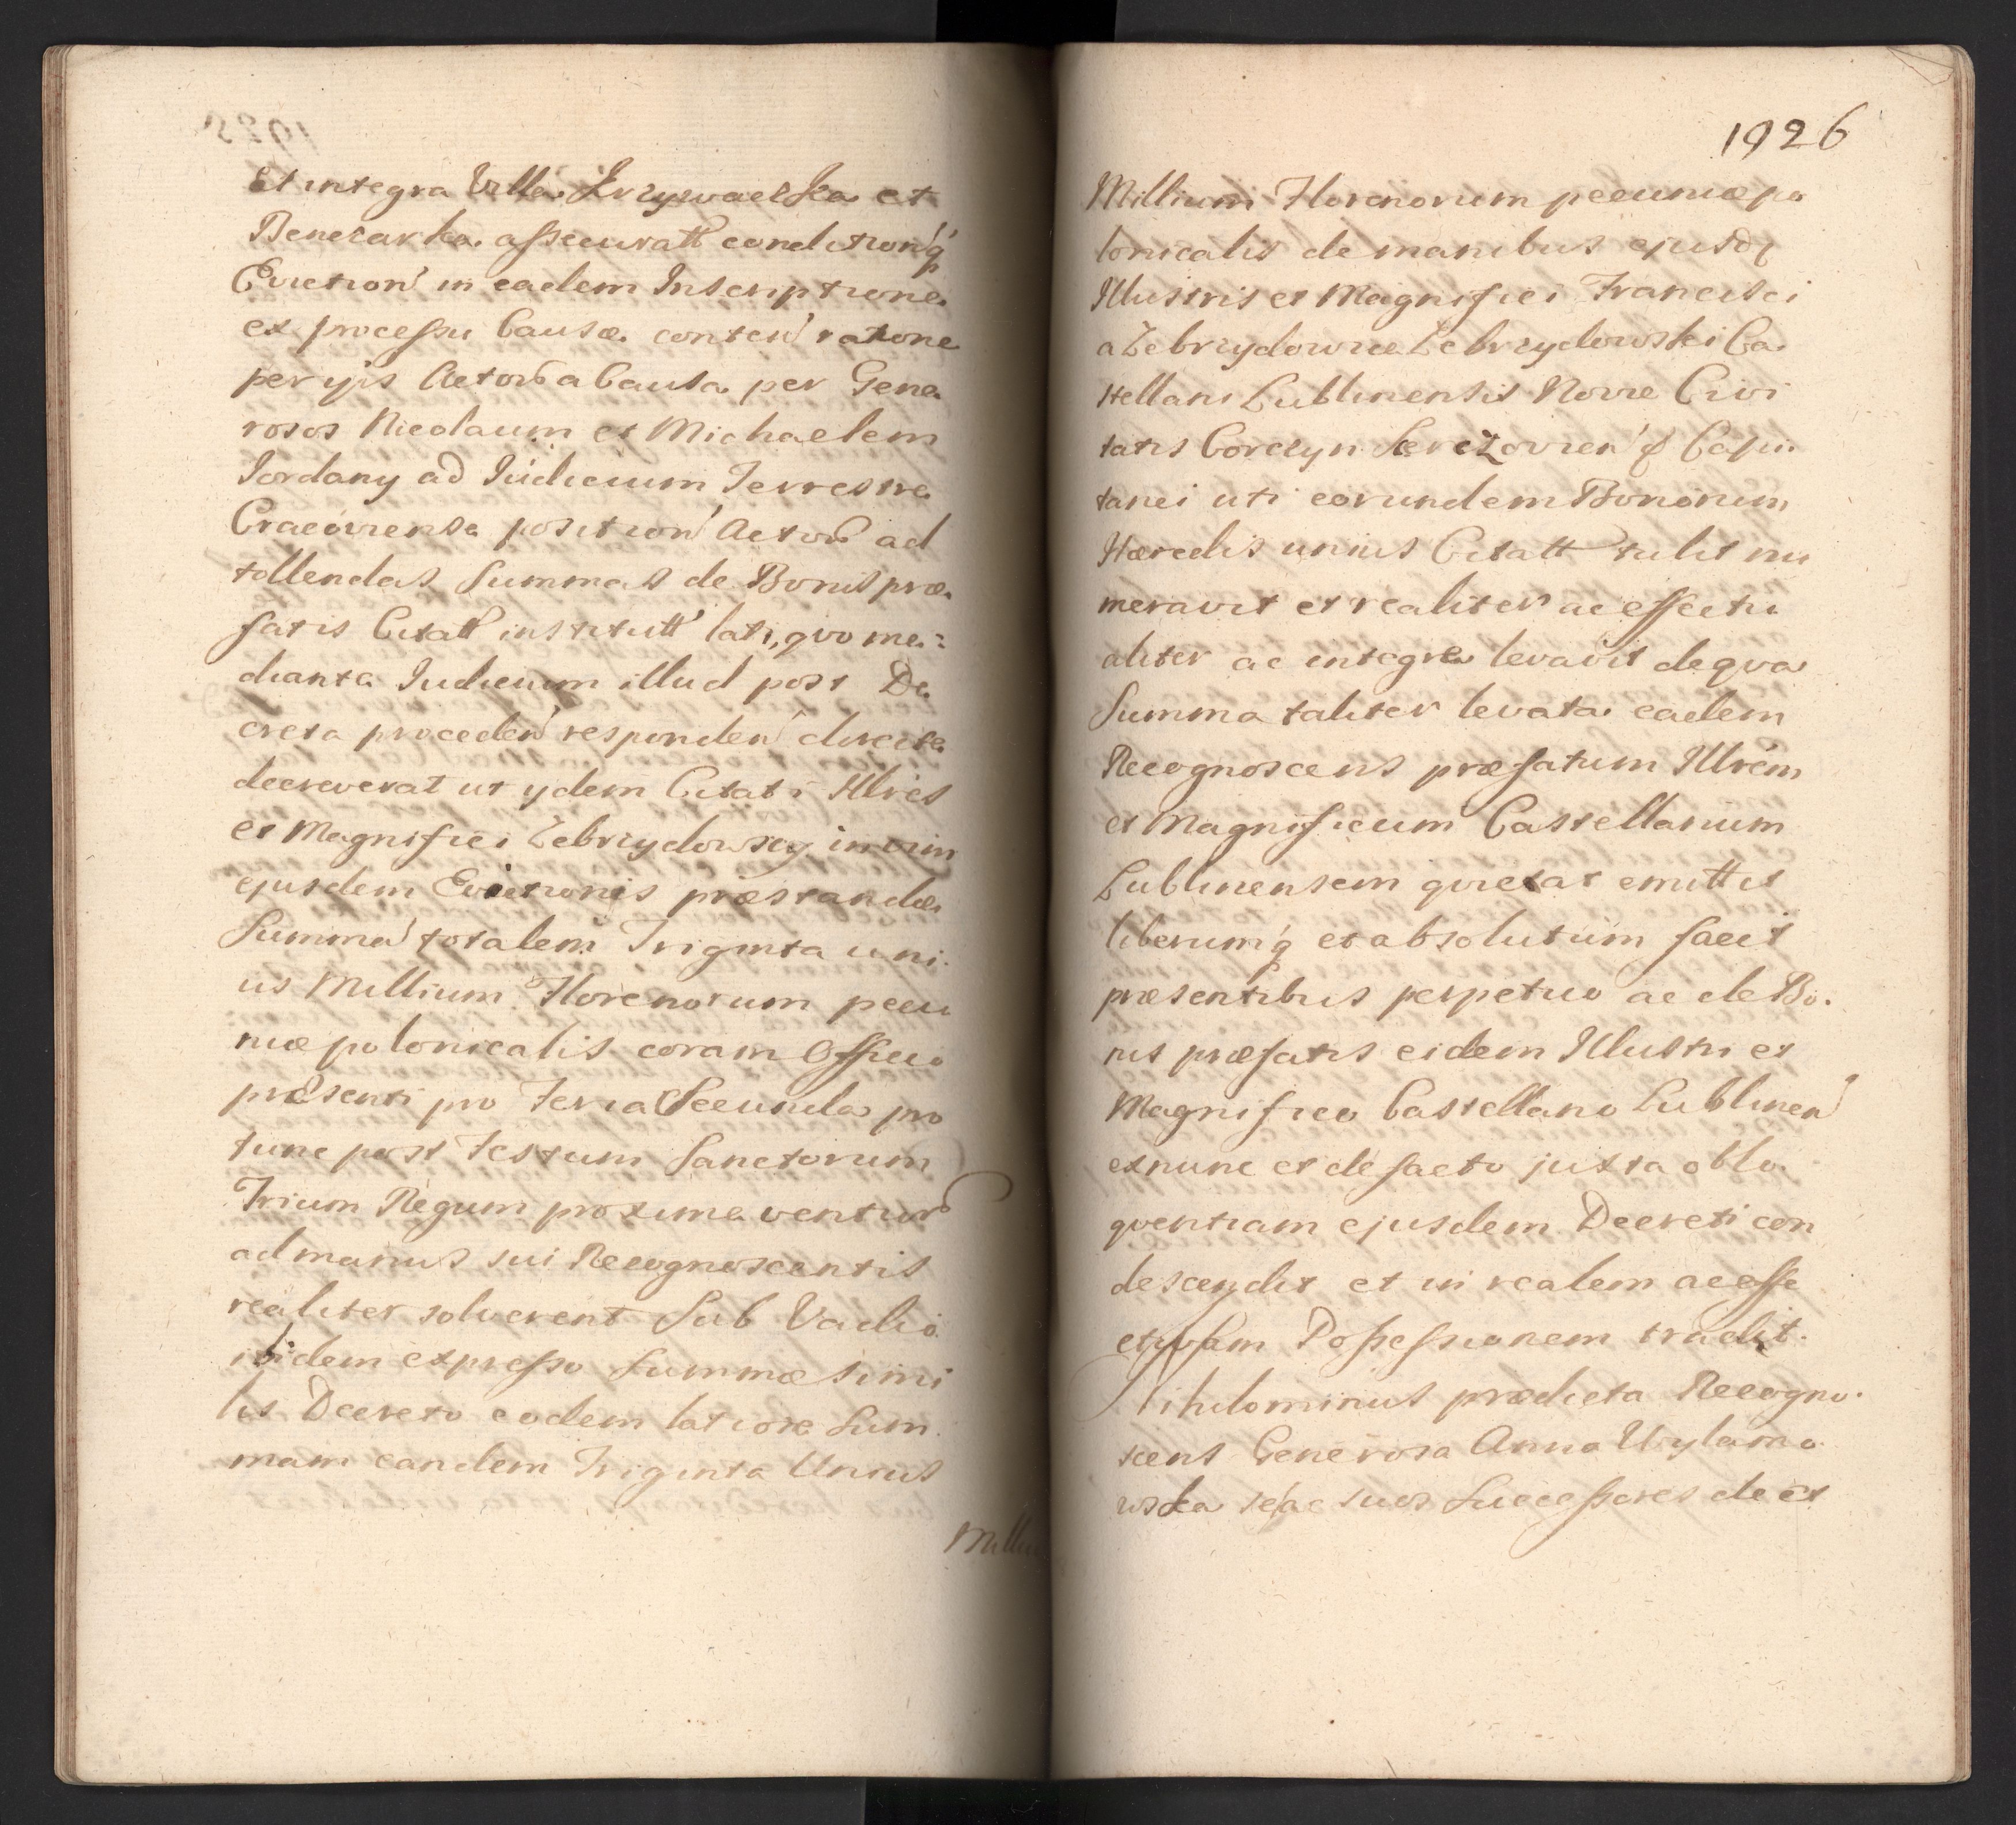 Et integra Villa Krzywaczka et
Benczarka assecuratt condition'q'
Eviction' in eadem Inscriptione
ex processu Causæ conten' ratione
per yjs Actorb a Causa per Gene
rosos Nicolaum et Michaelem
Jordany ad Iudicium Terrestre
Cracoviense position' Actorb ad
tollendas Summas de Bonis præ
fatis Citatt institutt lati, qvo me:
diante Iudicium illud post De
creta proceden' responden' directe
decreverat ut ydem Citati Illres
et Magnifici Zebrzydowscy in vim
ejusdem Evictionis præstandæ
Summa' totalem Triginta uni
us Millium Florenorum pecu
niæ polonicalis coram Officio
præsenti pro Feria Secunda pro
tunc post Festum Sanctorum
Trium Regum proxime ventur
ad manus sui Recognoscentis
realiter solverent Sub Vadio
ibidem expresso Summæ simi
lis Decreto eodem latiore Sum
mam eandem Triginta Unius
Milliu
1926
Millium Florenorum pecuniæ po
lonicalis de manibus ejusdq
Illustris et Magnifici Francisci
a Zebrzydowice Zebrzydowski Ca
stellani Lublinensis Novæ Civi
tatis Corczyn &c Capi
tanei uti eorundem Bonorum
Hæredis unius Citatt tulit nu
meravit et realiter ac effectu
aliter ac integre levavit de qva
Summa taliter levata eadem
Recognoscens præfatum Illrem
et Magnificum Castellanum
Lublinensem qvietat emittit
liberumq et absolutum facit
præsentibus perpetuo ac de Bo
nis præfatis eidem Illustri et
Magnifico Castellano Lublinen'
ex nunc et de facto juxta oblo
qventiam ejusdem Decreti con
descendit et in realem ac effe
ctivam Possessionem tradit.
Nihilominus prædicta Recogno
scens Generosa Anna Wylamo
wska se ac suos Successores de et